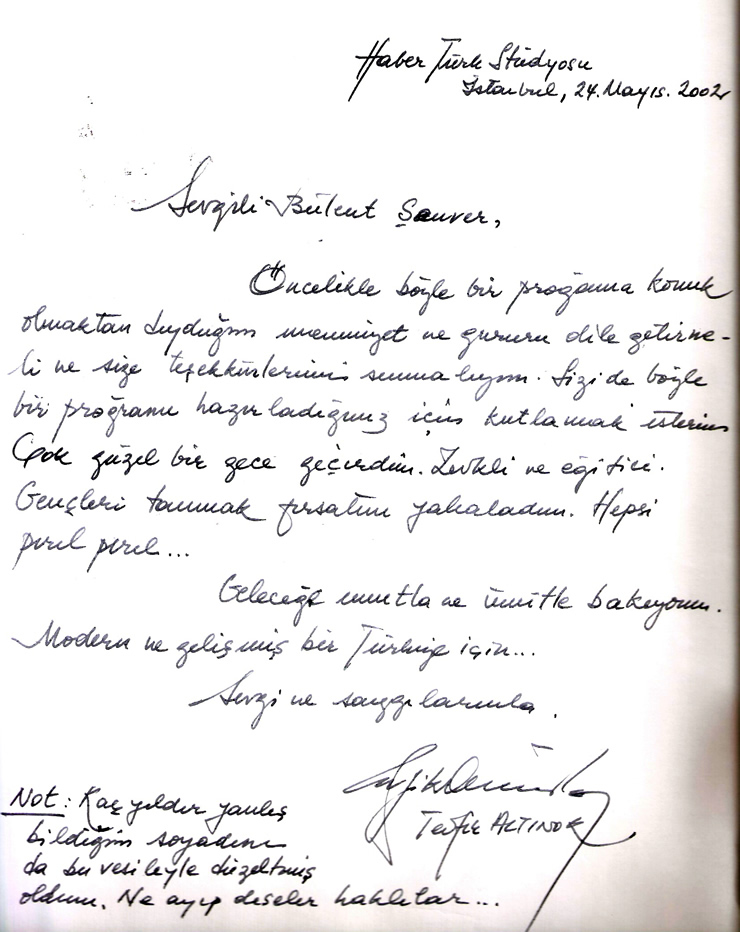 Haber Türk Stüdyosu
İstanbul, 24. Mayıs. 2002
Sevgili Bülent Şenver,
Öncelikle böyle bir proğrama konuk
olmaktan duyduğum memnuniyet ve gururu dile getirme-
li ve size teşekkürlerimi sunmalıyım. Sizi de böyle
bir proğramı hazırladığınız için kutlamak isterim
Çok güzel bir gece geçirdim. Zevkli ve eğitici.
Gençleri tanımak fırsatını yakaladım. Hepsi
pırıl pırıl...
Geleceğe umutla ve ümitle bakıyorum.
Modern ve gelişmiş bir Türkiye için...
Sevgi ve saygılarımla.
Tevfik ALTINOK
Not: Kaç yıldır yanlış
bildiğim soyadını
da bu vesileyle düzeltmiş
oldum. Ne ayıp deseler haklılar...